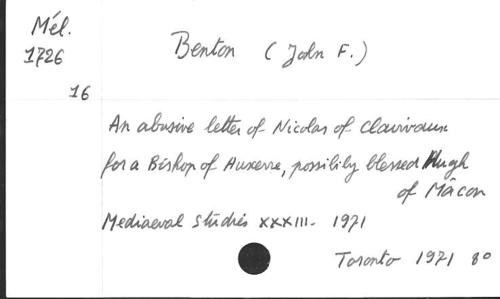 Mél.
1726
Benton (John F.)
16
An abusive letter of Nicolas of Clairvaux
for a Bishop of Auxerre, possibily blessed Hugh
of Mâcon
Mediaeval Studies XXXIII - 1971
Toronto 1971 8º